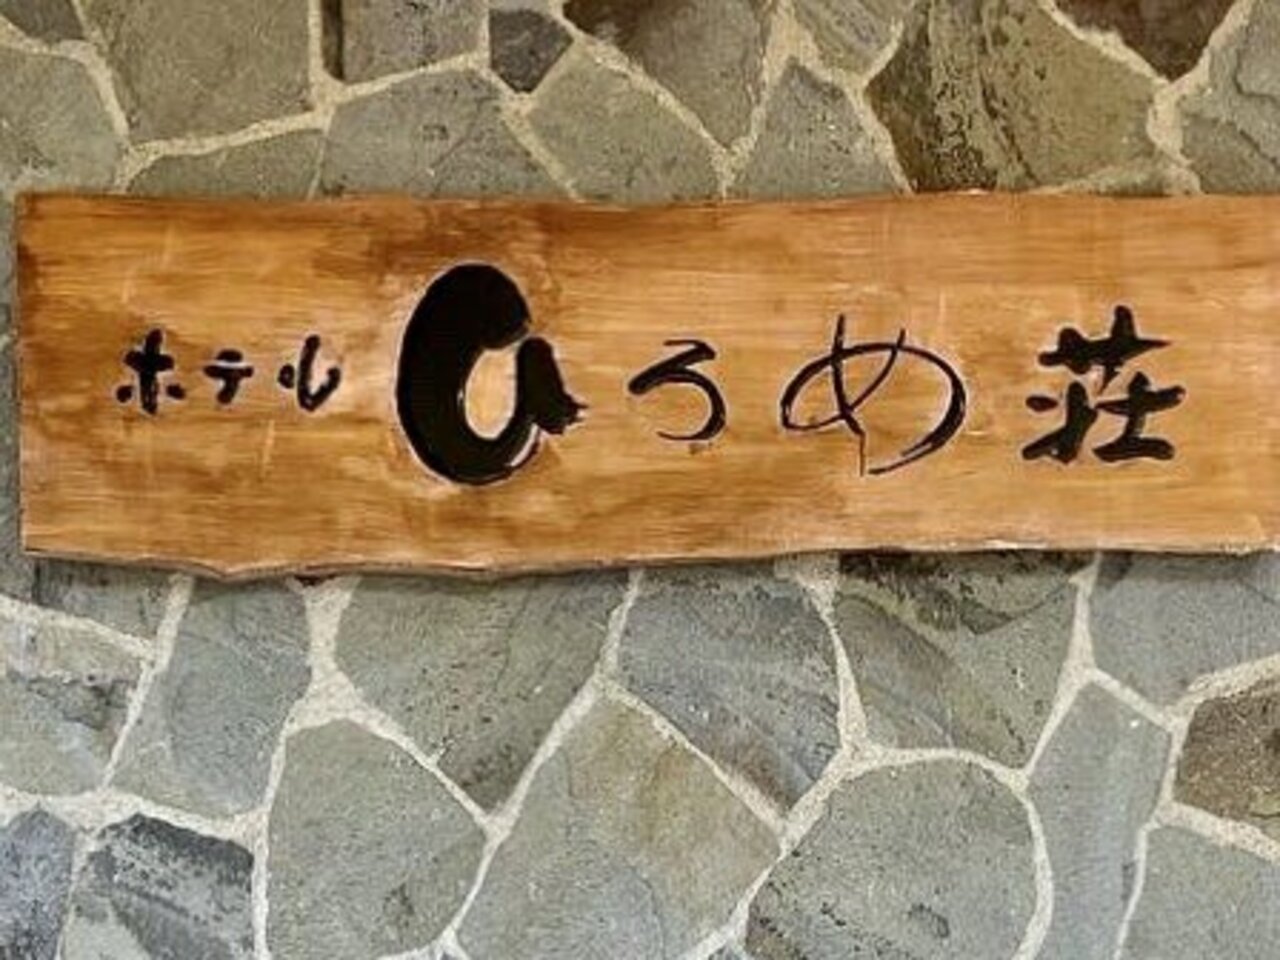 ホテルひろめ荘